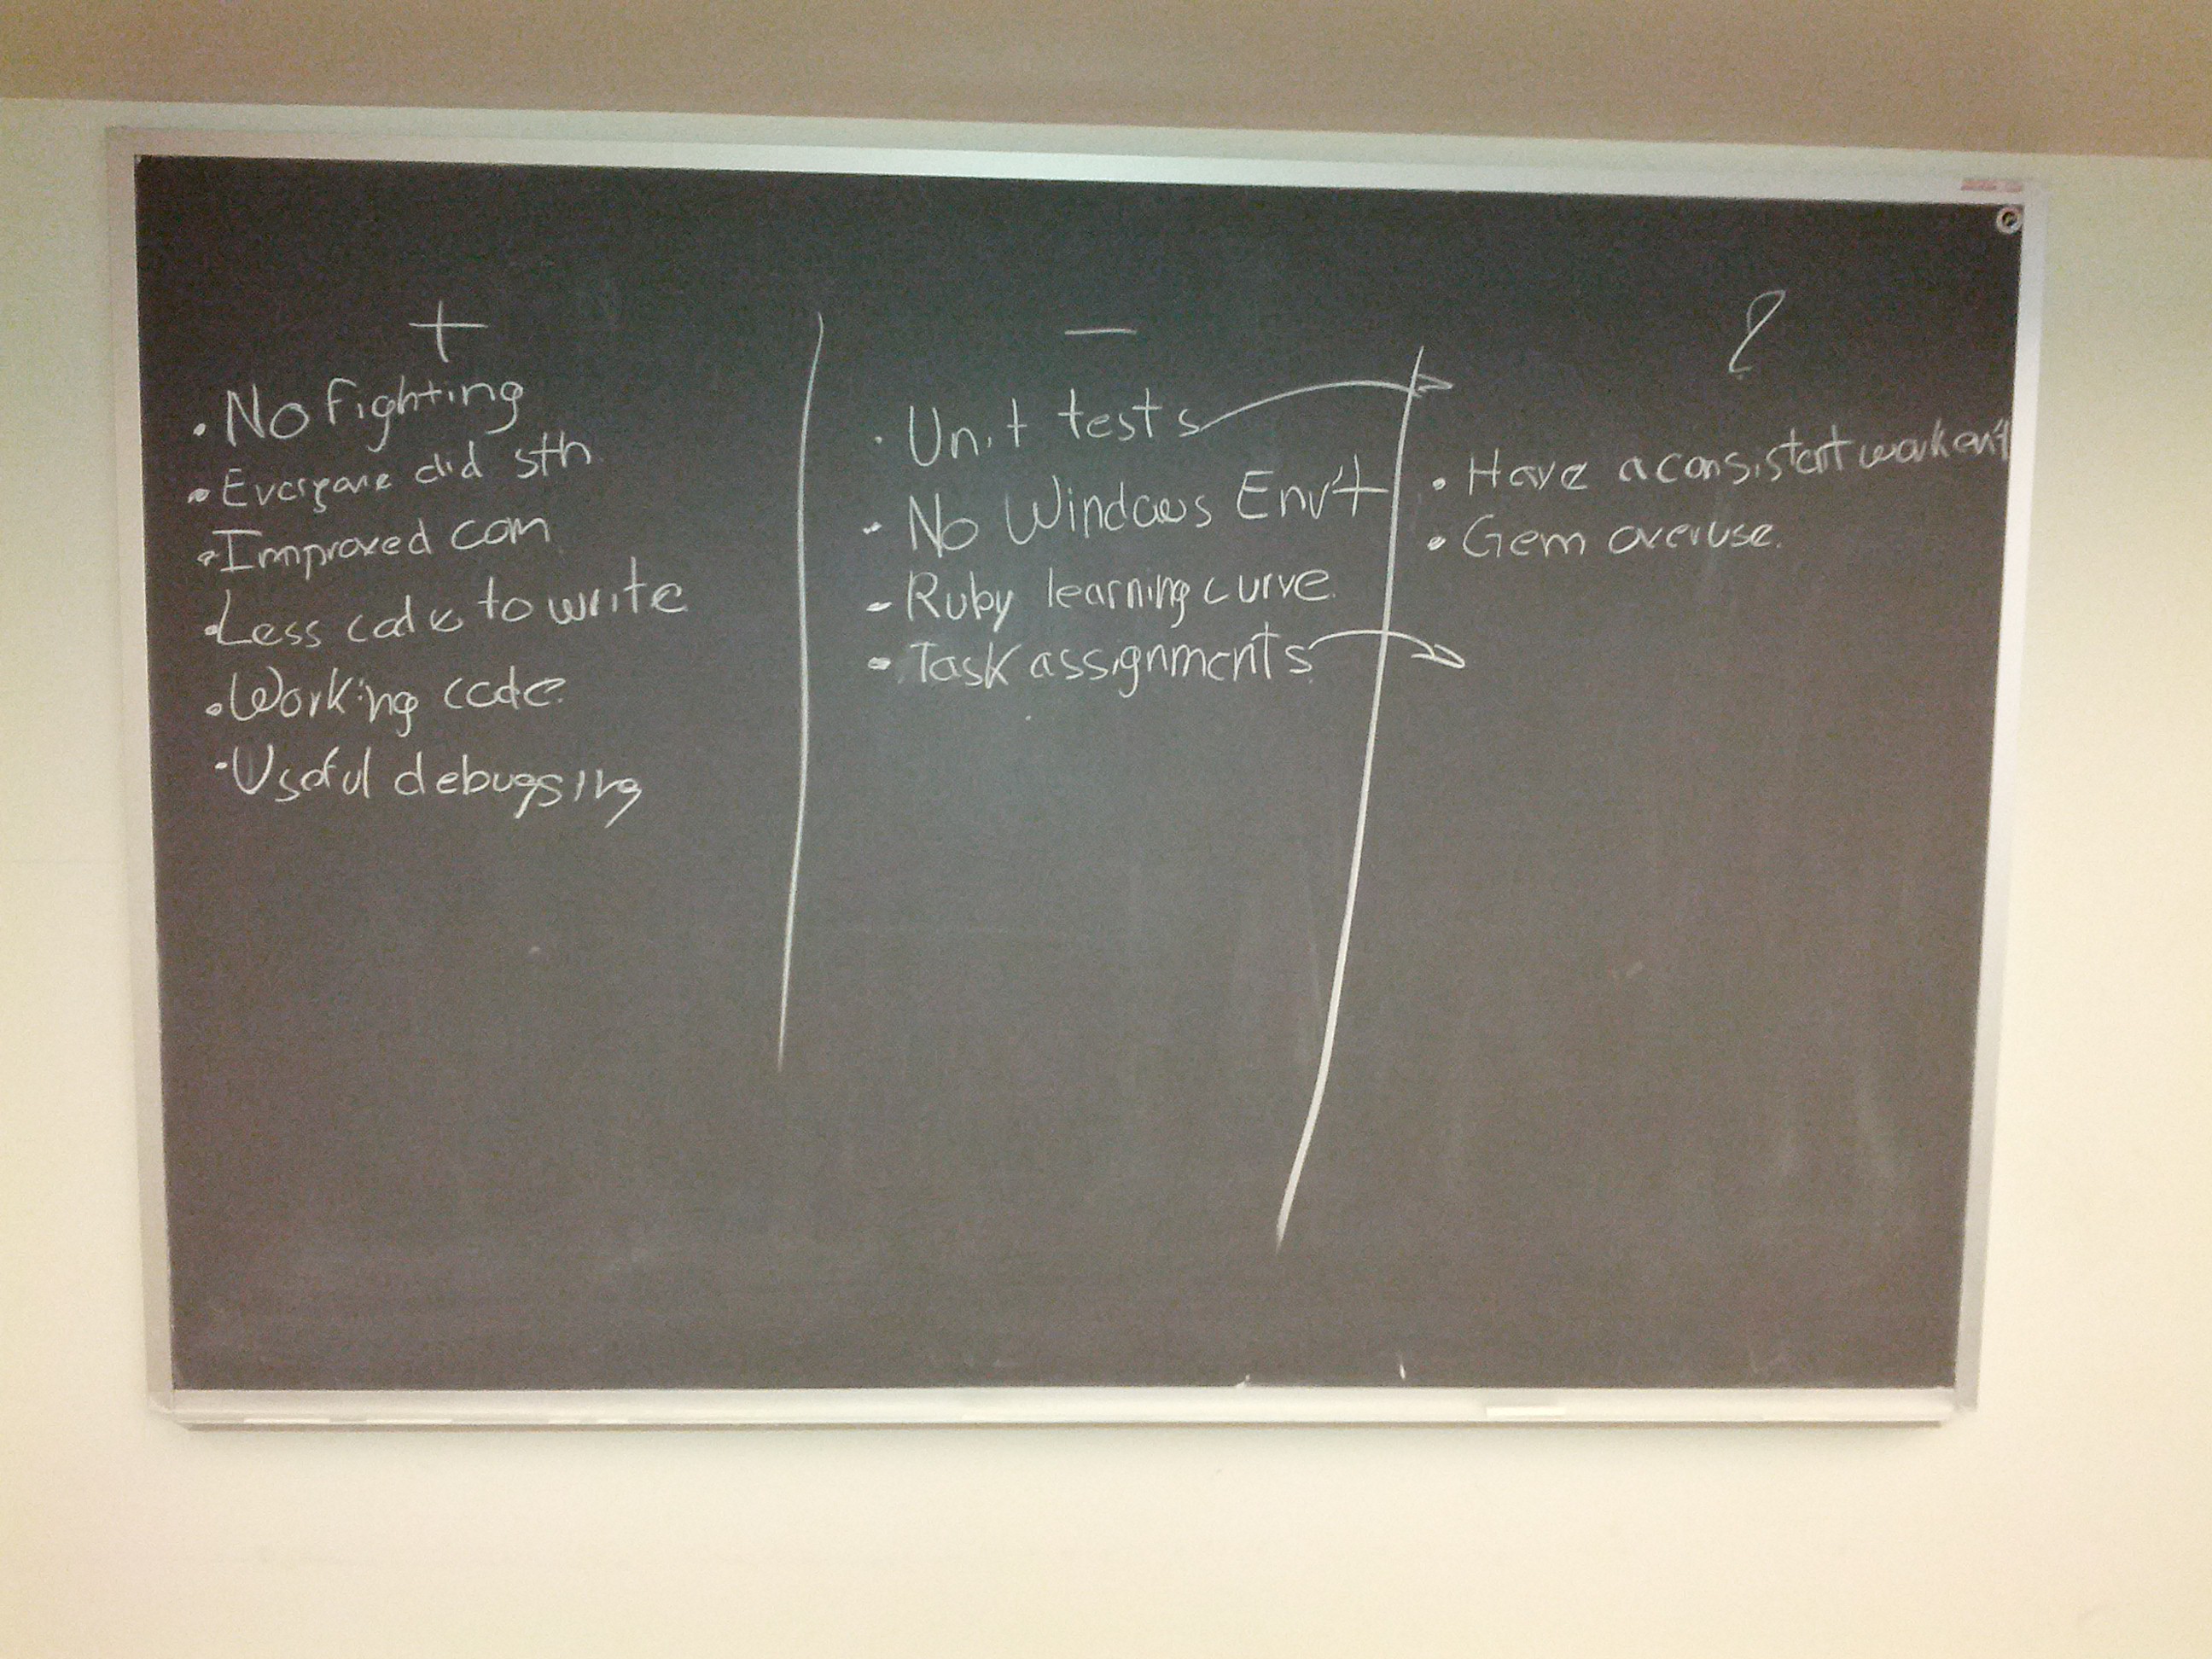 +
• No fighting
• Everyone did sth
• Improved com
• Less code to write
• Working code
• Useful debugging
—
• Unit tests
- No Windows Env't
- Ruby learning curve
• Task assignments
?
• Have a consistent work env't
• Gem overuse.